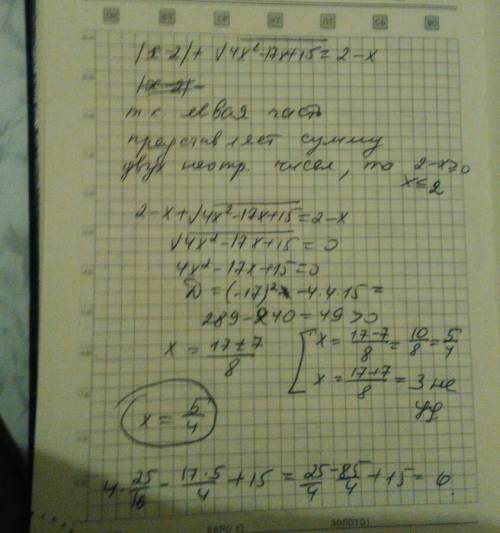 ПН ВТ СР ЧТ ПТ СБ ВС
|x-2| + √4x²-17x+15 = 2-x
|x-2|-
т.к левая часть
представляет сумму
двух неотр. чисел, то 2-x≥0
x≤2
2-x+√4x²-17x+15 = 2-x
√4x²-17x+15 = 0
4x²-17x+15=0
D = (-17)² - 4·4·15 =
289-240 = 49 > 0
x = 17±7/8
x = 17-7/8 = 10/8 = 5/4
x = 17+7/8 = 3 не
уд
x = 5/4
4·25/16 - 17·5/4 + 15 = 25/4 - 85/4 + 15 = 0.